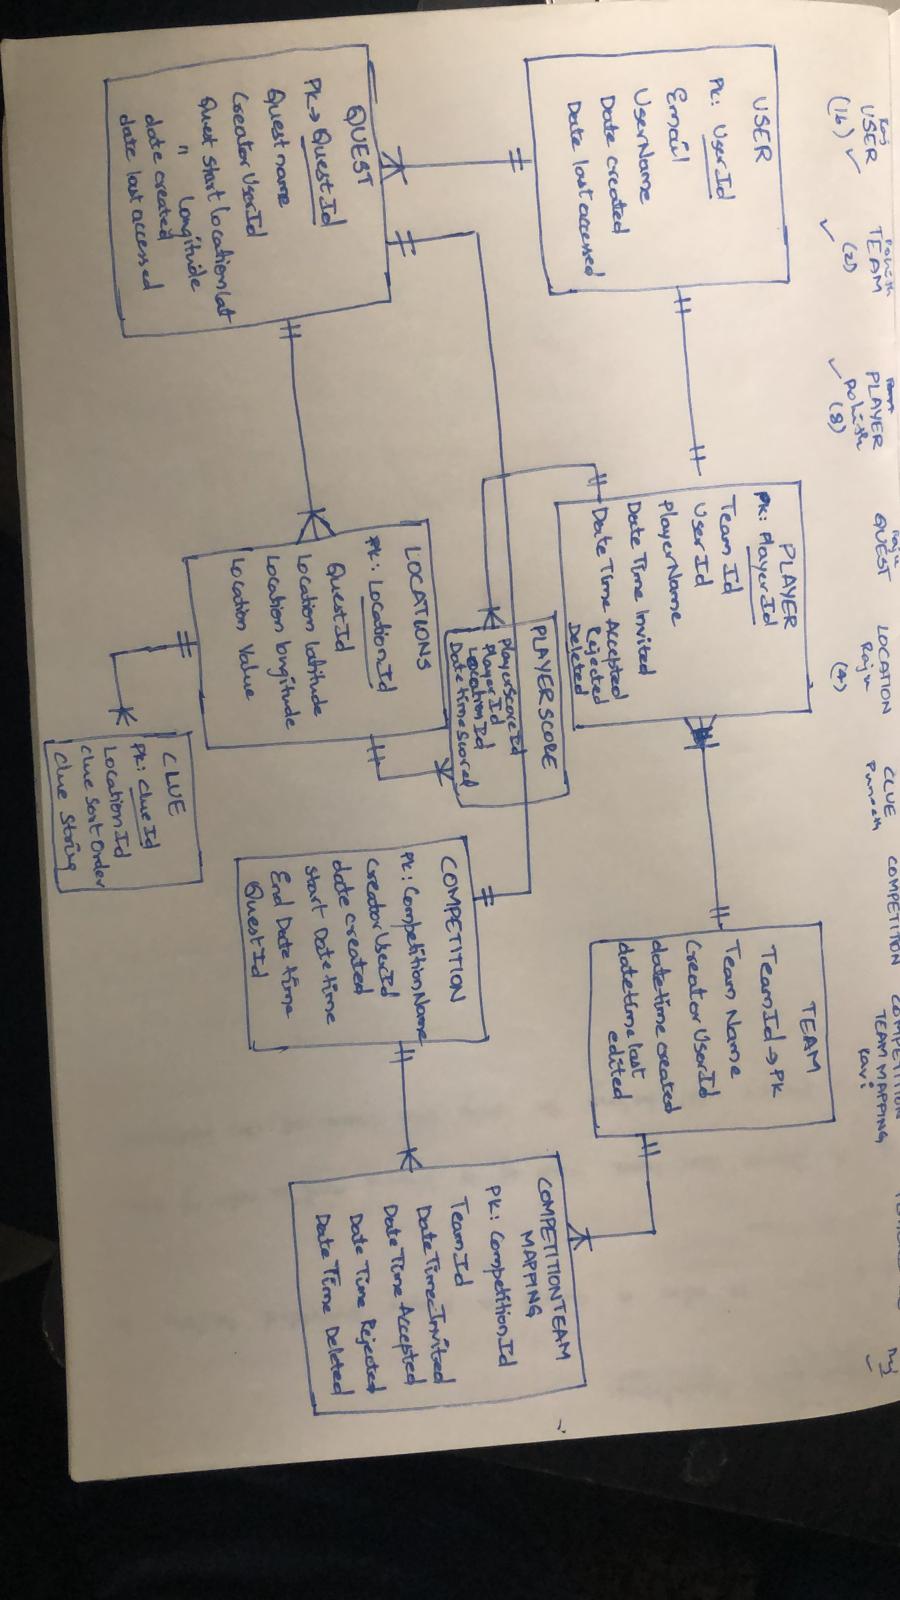 USER
(16)
Rohith
TEAM
(2)
PLAYER
Rohith
(8)
Raju
QUEST
LOCATION
Raju
(4)
CLUE
Puneeth
COMPETITION
TEAM MAPPING
Ravi
USER
PK: UserId
Email
UserName
Date created
Date last accessed
PLAYER
PK: PlayerId
Team Id
User Id
PlayerName
Date Time Invited
Date Time Accepted
Rejected
Deleted
TEAM
TeamId → PK
Team Name
Creator UserId
datetime created
datetime last
edited
PLAYERSCORE
PlayerScoreId
PlayerId
LocationId
Datetimescored
COMPETITIONTEAM
MAPPING
PK: CompetitionId
TeamId
DateTimeInvited
Date Time Accepted
Date Time Rejected
Date Time Deleted
COMPETITION
PK: CompetitionName
CreatorUserId
date created
start Datetime
End Datetime
QuestId
LOCATIONS
PK: LocationId
QuestId
Location latitude
Location longitude
Location Value
QUEST
PK → QuestId
Quest name
CreatorUserId
Quest start location lat
" Longitude
date created
date last accessed
CLUE
PK: ClueId
LocationId
Clue Sort Order
Clue String